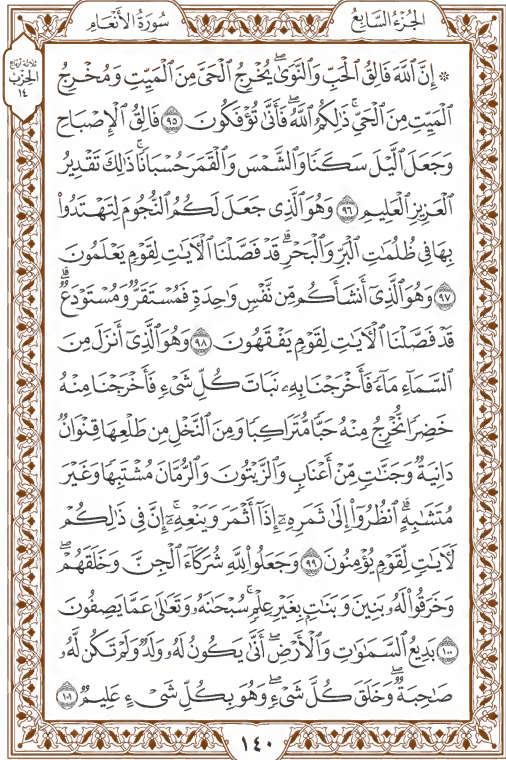 الجُزْءُ السَّابِعُ
سُورَةُ الأَنْعَامِ
ثلاثة أرباع
الحزب
١٤
۞ إِنَّ ٱللَّهَ فَالِقُ ٱلْحَبِّ وَٱلنَّوَىٰۖ يُخْرِجُ ٱلْحَىَّ مِنَ ٱلْمَيِّتِ وَمُخْرِجُ
ٱلْمَيِّتِ مِنَ ٱلْحَىِّۚ ذَٰلِكُمُ ٱللَّهُۖ فَأَنَّىٰ تُؤْفَكُونَ ٩٥ فَالِقُ ٱلْإِصْبَاحِ
وَجَعَلَ ٱلَّيْلَ سَكَنًا وَٱلشَّمْسَ وَٱلْقَمَرَ حُسْبَانًاۚ ذَٰلِكَ تَقْدِيرُ
ٱلْعَزِيزِ ٱلْعَلِيمِ ٩٦ وَهُوَ ٱلَّذِى جَعَلَ لَكُمُ ٱلنُّجُومَ لِتَهْتَدُوا۟
بِهَا فِى ظُلُمَٰتِ ٱلْبَرِّ وَٱلْبَحْرِۗ قَدْ فَصَّلْنَا ٱلْءَايَٰتِ لِقَوْمٍ يَعْلَمُونَ
٩٧ وَهُوَ ٱلَّذِىٓ أَنشَأَكُم مِّن نَّفْسٍ وَٰحِدَةٍ فَمُسْتَقَرٌّ وَمُسْتَوْدَعٌۗ
قَدْ فَصَّلْنَا ٱلْءَايَٰتِ لِقَوْمٍ يَفْقَهُونَ ٩٨ وَهُوَ ٱلَّذِىٓ أَنزَلَ مِنَ
ٱلسَّمَآءِ مَآءً فَأَخْرَجْنَا بِهِۦ نَبَاتَ كُلِّ شَىْءٍ فَأَخْرَجْنَا مِنْهُ
خَضِرًا نُّخْرِجُ مِنْهُ حَبًّا مُّتَرَاكِبًا وَمِنَ ٱلنَّخْلِ مِن طَلْعِهَا قِنْوَانٌ
دَانِيَةٌ وَجَنَّٰتٍ مِّنْ أَعْنَابٍ وَٱلزَّيْتُونَ وَٱلرُّمَّانَ مُشْتَبِهًا وَغَيْرَ
مُتَشَٰبِهٍۗ ٱنظُرُوٓا۟ إِلَىٰ ثَمَرِهِۦٓ إِذَآ أَثْمَرَ وَيَنْعِهِۦٓۚ إِنَّ فِى ذَٰلِكُمْ
لَءَايَٰتٍ لِّقَوْمٍ يُؤْمِنُونَ ٩٩ وَجَعَلُوا۟ لِلَّهِ شُرَكَآءَ ٱلْجِنَّ وَخَلَقَهُمْۖ
وَخَرَقُوا۟ لَهُۥ بَنِينَ وَبَنَٰتٍۭ بِغَيْرِ عِلْمٍۚ سُبْحَٰنَهُۥ وَتَعَٰلَىٰ عَمَّا يَصِفُونَ
١٠٠ بَدِيعُ ٱلسَّمَٰوَٰتِ وَٱلْأَرْضِۖ أَنَّىٰ يَكُونُ لَهُۥ وَلَدٌ وَلَمْ تَكُن لَّهُۥ
صَٰحِبَةٌۖ وَخَلَقَ كُلَّ شَىْءٍۖ وَهُوَ بِكُلِّ شَىْءٍ عَلِيمٌ ١٠١
١٤٠